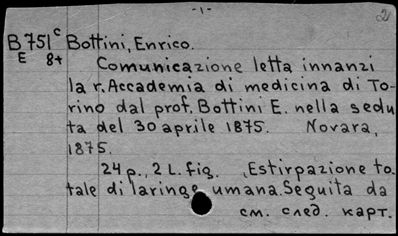 -1-
2
B751c Bottini, Enrico.
E 8+
Comunicazione letta innanzi
la r. Accademia di medicina di To-
rino dal prof. Bottini E. nella sedu
ta del 30 aprile 1875. Novara,
1875.
24 p., 2 L. fig. (Estirpazione to-
tale di laringe umana. Seguita da
см. след. карт.